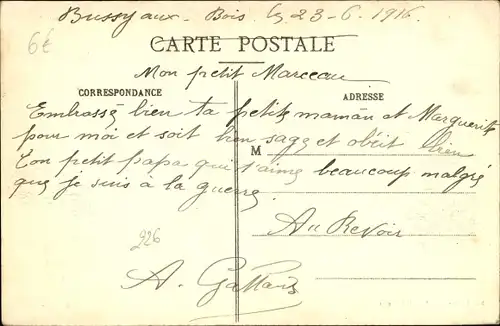 Bussy aux Bois le 23-6-1916
6€
CARTE POSTALE
Mon petit Marceau
CORRESPONDANCE
ADRESSE
Embrassé bien ta petite maman et Marguerite
pour moi et soit bien sage et obéit bien
M
Ton petit papa qui t'aime beaucoup malgré
que je suis a la guerre
226
Au Revoir
A.